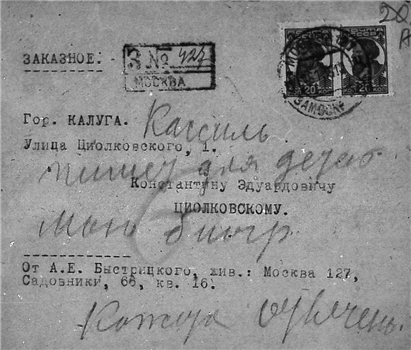 20
ЗАКАЗНОЕ.
З № 427
МОСКВА
20 20
Гор. КАЛУГА.
Кассиль
Улица Циолковского, 1.
пишет для детей
Константину Эдуардовичу
ЦИОЛКОВСКОМУ.
мою биогр
От А.Е. Быстрицкого, жив.: Москва 127,
Садовники, 66, кв. 16.